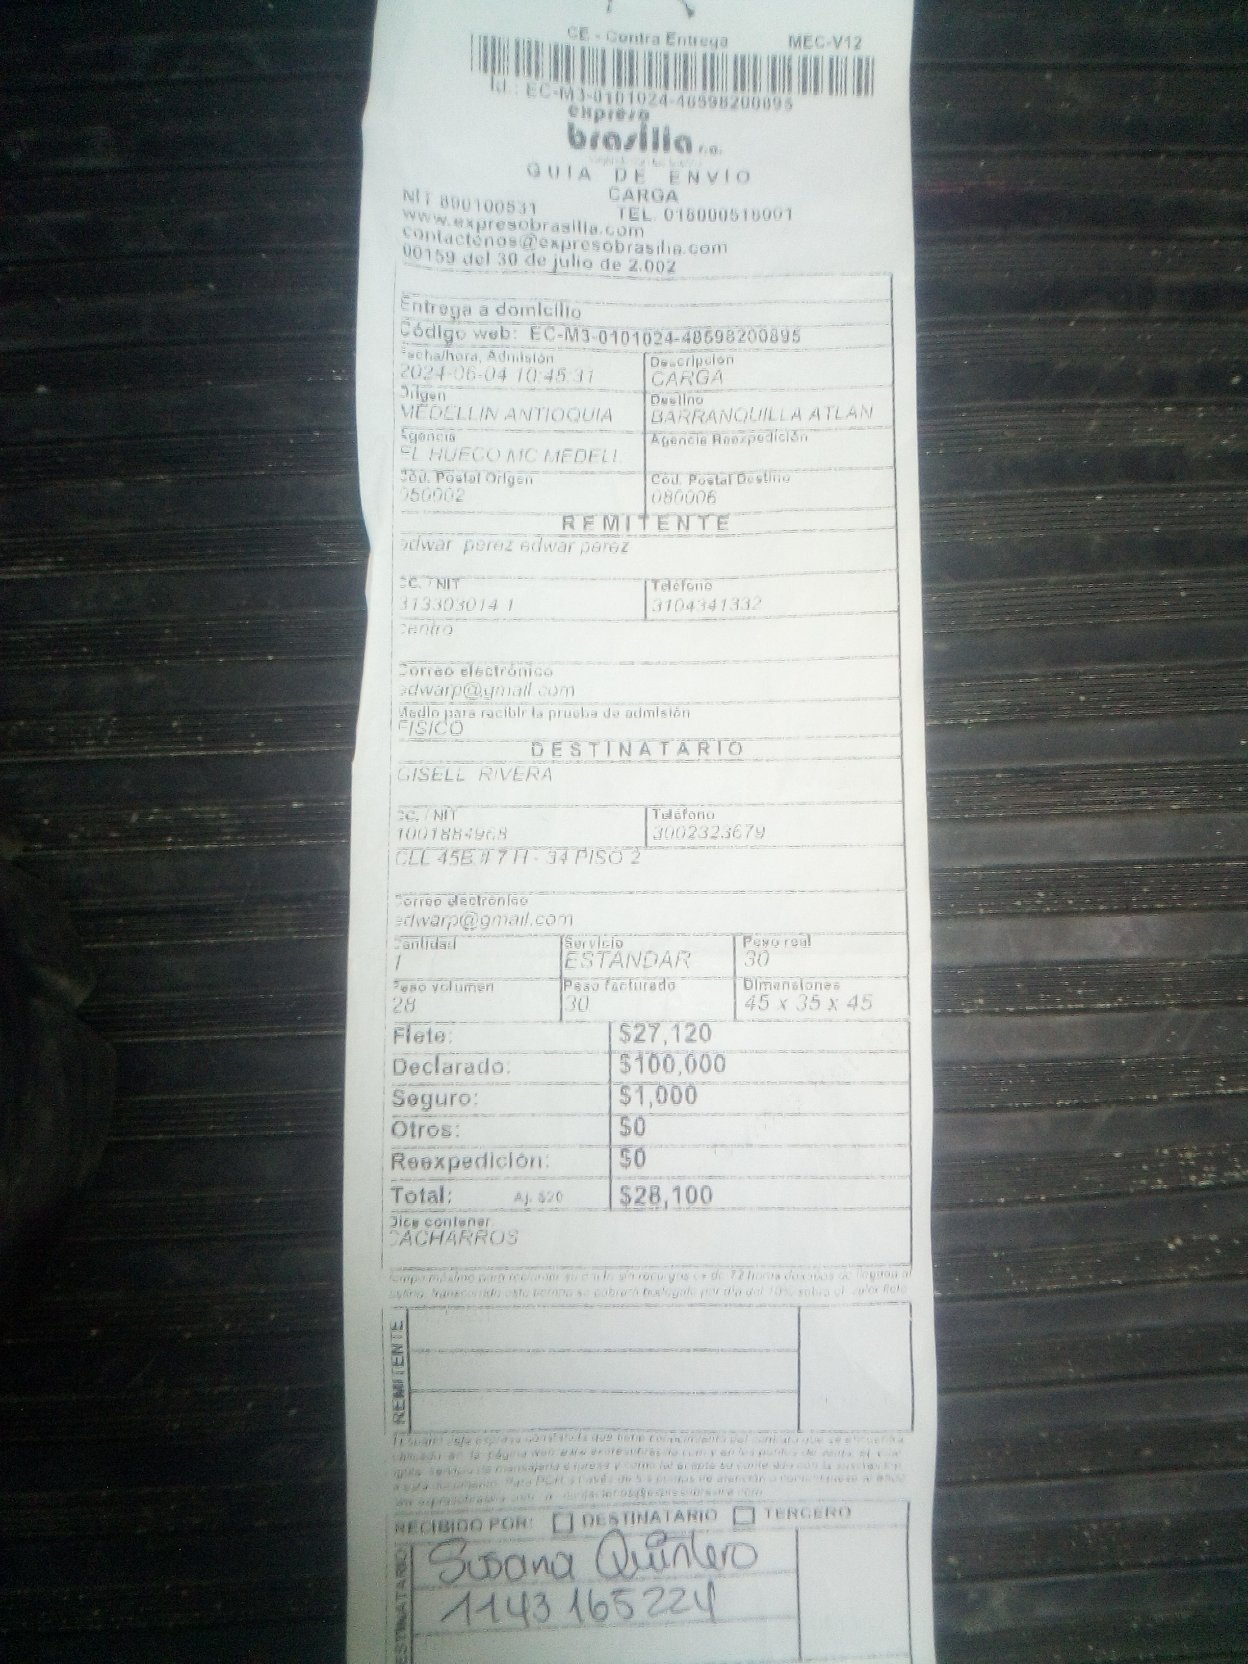 CE - Contra Entrega MEC-V12
Id.: EC-M3-0101024-48598200895
expreso
brasilia s.a.
GUIA DE ENVÍO
CARGA
NIT 890100531 TEL. 018000518001
www.expresobrasilia.com
contactenos@expresobrasilia.com
00159 del 30 de julio de 2.002
Entrega a domicilio
Código web: EC-M3-0101024-48598200895
Fecha/hora, Admisión Descripción
2024-06-04 10:45:31 CARGA
Origen Destino
MEDELLIN ANTIOQUIA BARRANQUILLA ATLAN
Agencia Agencia Reexpedición
EL HUECO MC MEDELL
Cód. Postal Origen Cód. Postal Destino
050002 080006
REMITENTE
edwar perez edwar perez
CC. / NIT Teléfono
313303014 1 3104341332
centro
Correo electrónico
edwarp@gmail.com
Medio para recibir la prueba de admisión
FISICO
DESTINATARIO
GISELL RIVERA
CC. / NIT Teléfono
1001884968 3002323679
CLL 45E # 7 H - 34 PISO 2
Correo electrónico
edwarp@gmail.com
Cantidad Servicio Peso real
1 ESTANDAR 30
Peso volumen Peso facturado Dimensiones
28 30 45 x 35 x 45
Flete: $27,120
Declarado: $100,000
Seguro: $1,000
Otros: $0
Reexpedición: $0
Total: Aj. $20 $28,100
Dice contener
CACHARROS
REMITENTE
RECIBIDO POR: DESTINATARIO TERCERO
DESTINATARIO
Susana Quintero
1143165224